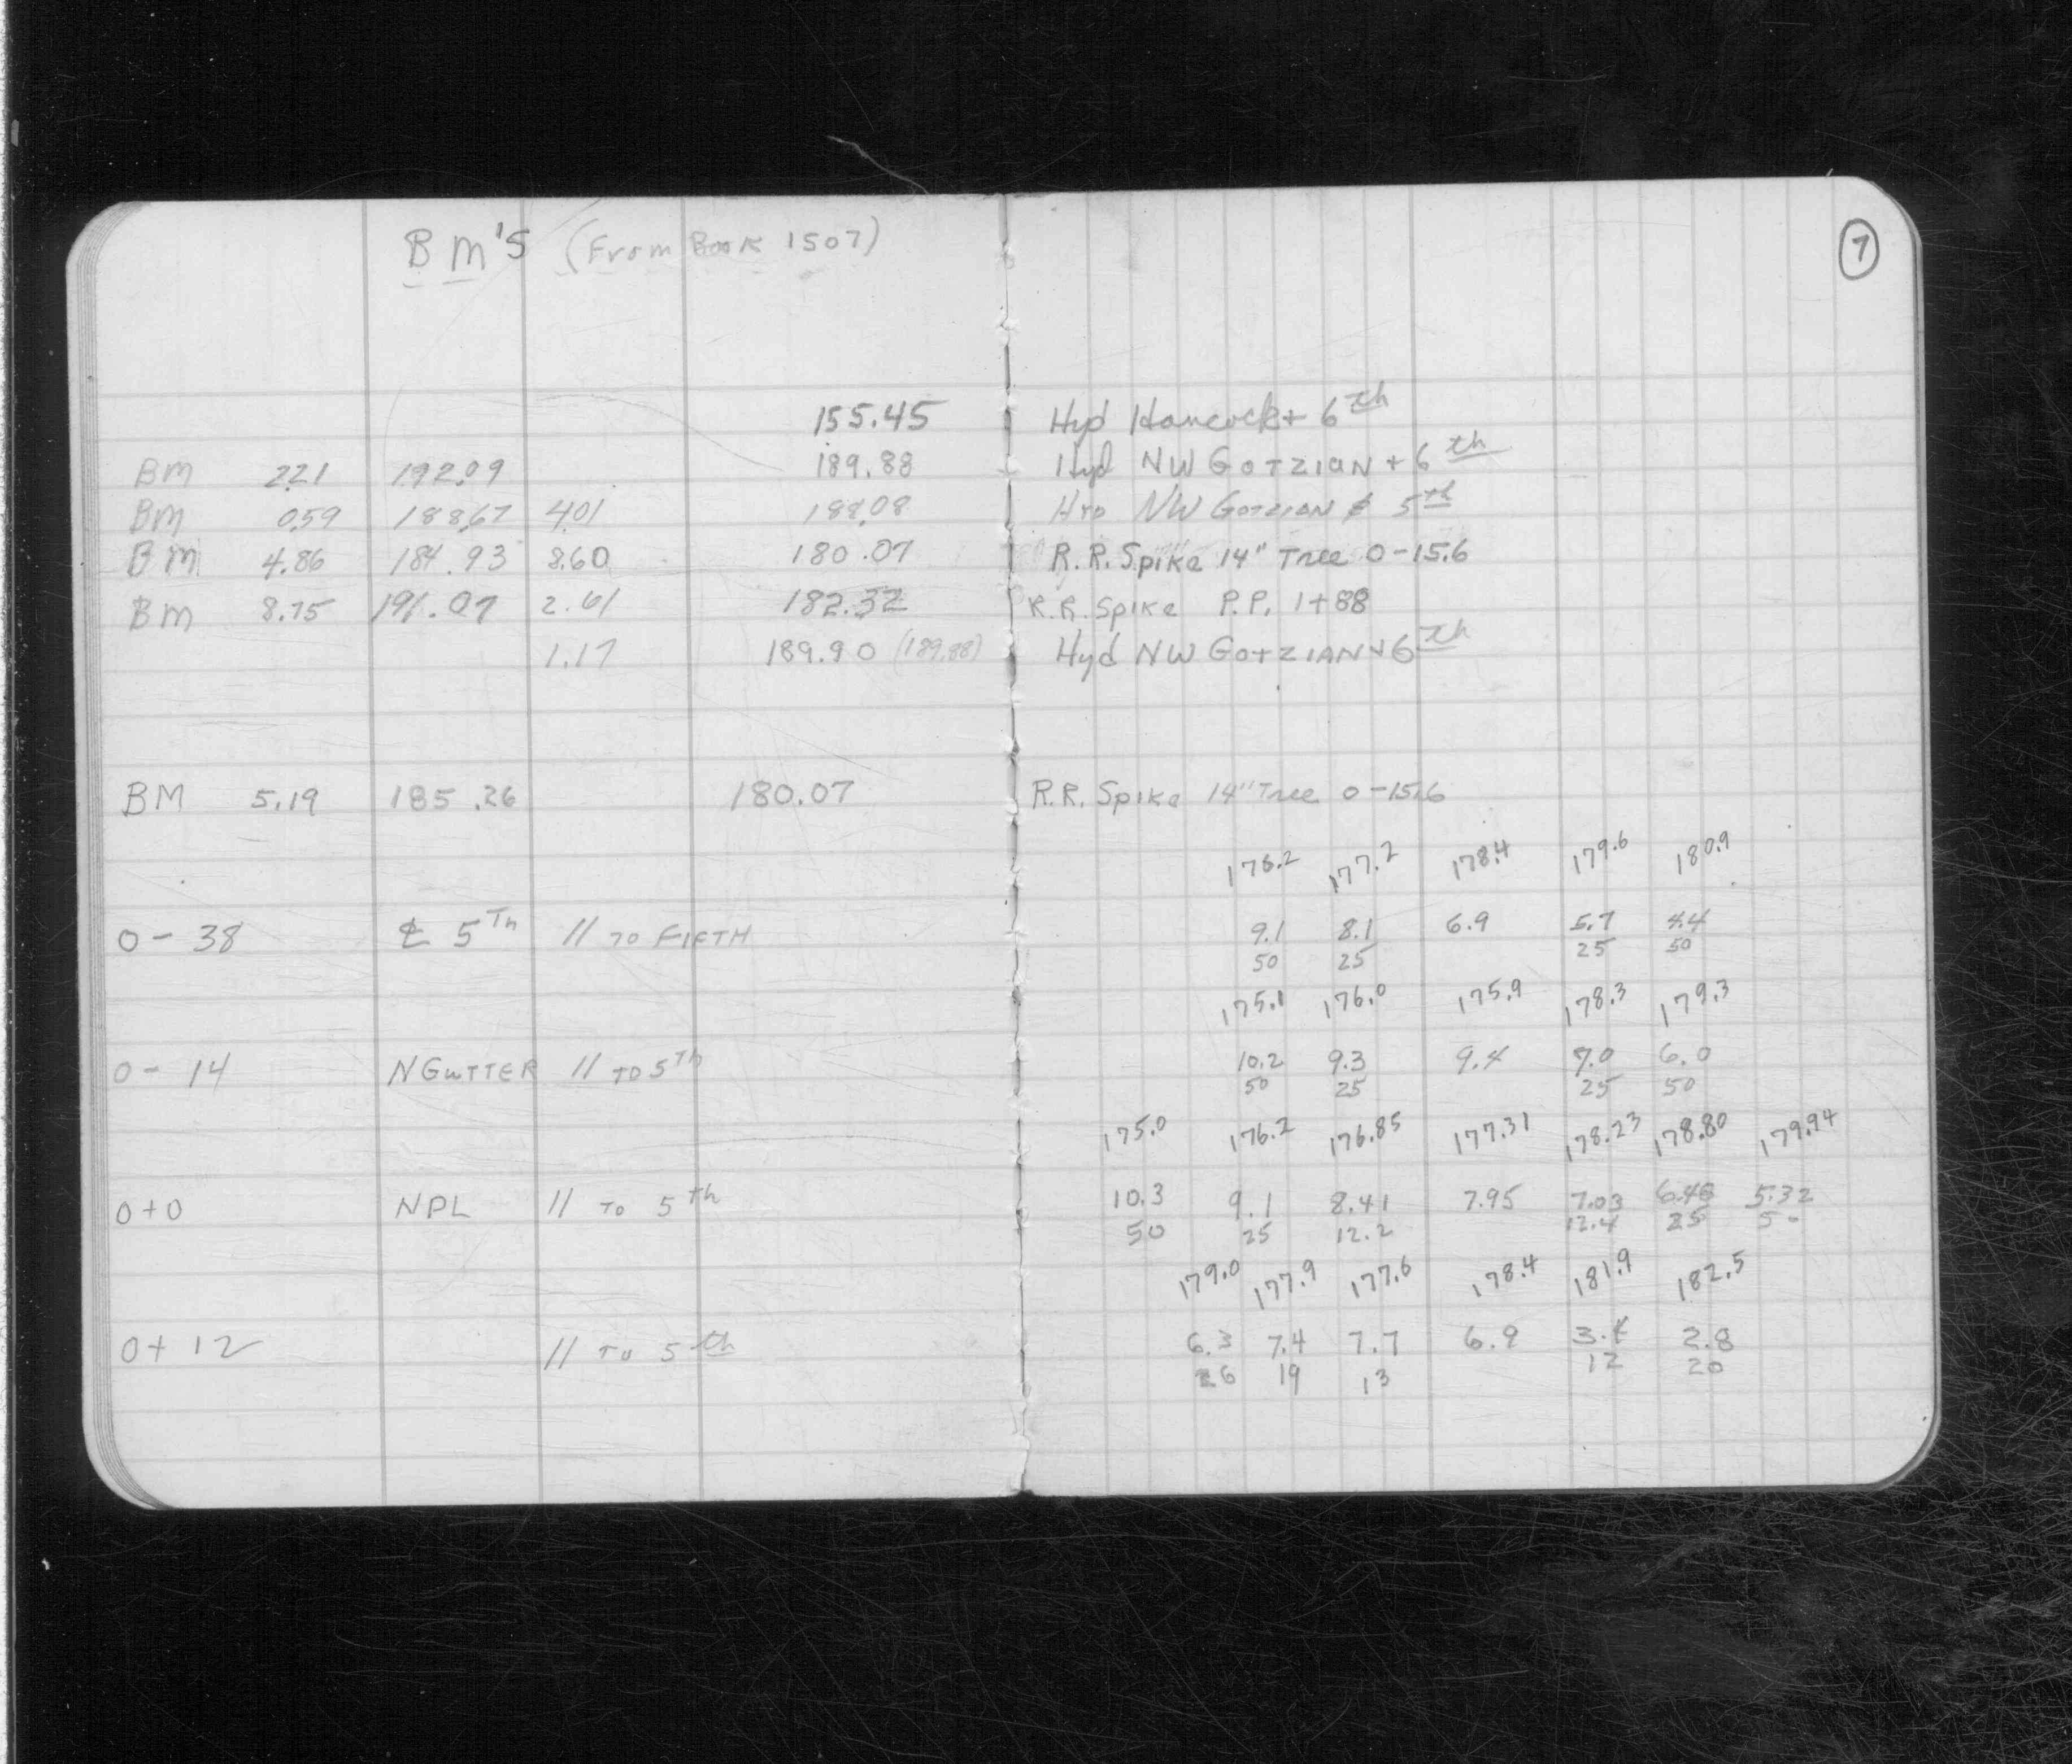 BM'S (From Book 1507)
7
155.45 Hyd Hancock + 6th
BM 2.21 192.09 189.88 Hyd NW GOTZIAN + 6th
BM 0.59 188.67 4.01 188.08 Hyd NW GOTZIAN & 5th
BM 4.86 184.93 8.60 180.07 R.R. Spike 14" Tree 0-15.6
BM 8.75 191.07 2.61 182.32 R.R. Spike P.P. 1+88
1.17 189.90 (189.88) Hyd NW GOTZIAN + 6th
BM 5.19 185.26 180.07 R.R. Spike 14" Tree 0-15.6
176.2 177.2 178.4 179.6 180.9
0-38 ℄ 5Th // TO FIFTH 9.1 8.1 6.9 5.7 4.4
50 25 25 50
175.1 176.0 175.9 178.3 179.3
0-14 N GUTTER // TO 5Th 10.2 9.3 9.4 7.0 6.0
50 25 25 50
175.0 176.2 176.85 177.31 178.23 178.80 179.94
0+0 NPL // TO 5th 10.3 9.1 8.41 7.95 7.03 6.46 5.32
50 25 12.2 12.4 25 50
179.0 177.9 177.6 178.4 181.9 182.5
0+12 // TO 5th 6.3 7.4 7.7 6.9 3.4 2.8
26 19 13 12 20